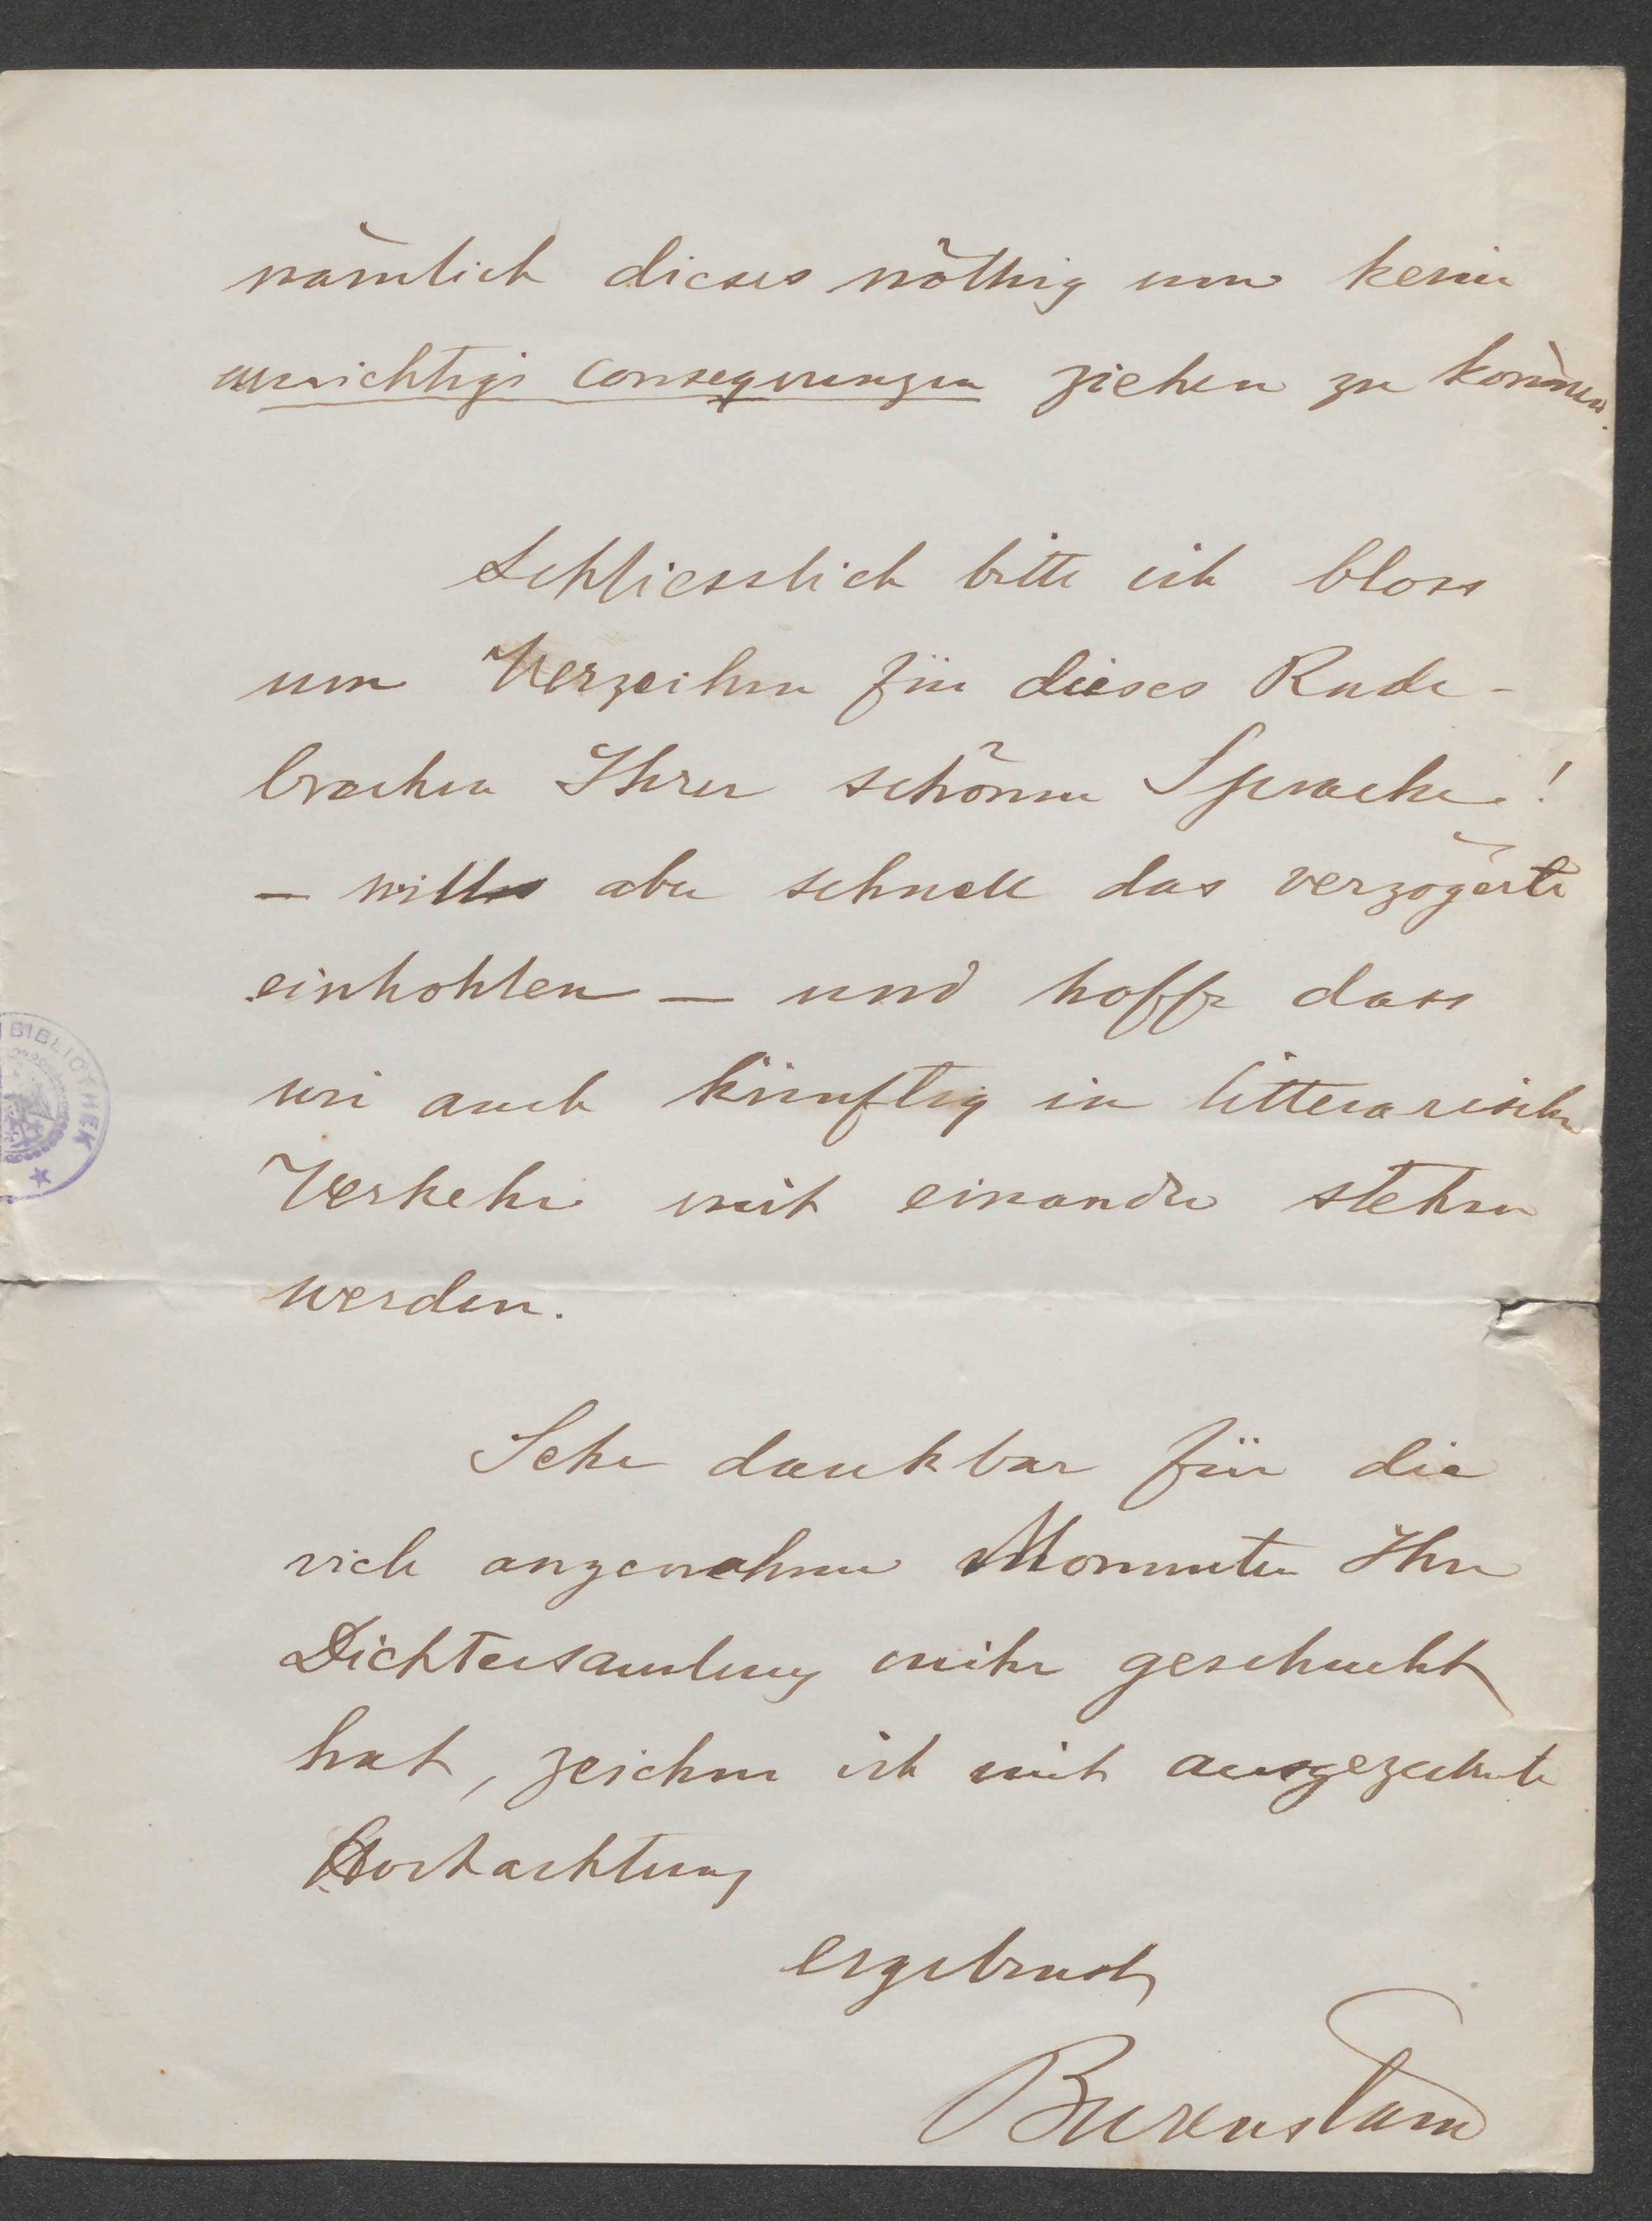 nämlich dieses nöthig um keine
unrichtige consequenzen ziehen zu können.
Schliesslich bitte ich bloss
um Verzeihen für dieses Rade-
brechen Ihrer schönen Sprache!
— will aber schnell das verzögerte
einhohlen — und hoffe dass
wir auch künftig in litterarischen
Verkehr mit einander stehen
werden.
Sehr dankbar für die
viele angenehme Momente Ihre
Dichtersamlung mihr geschenkt
hat, zeichne ich mit ausgezeichnete
Hochachtung
ergebenst
Burenstam
BIBLIOTHEK